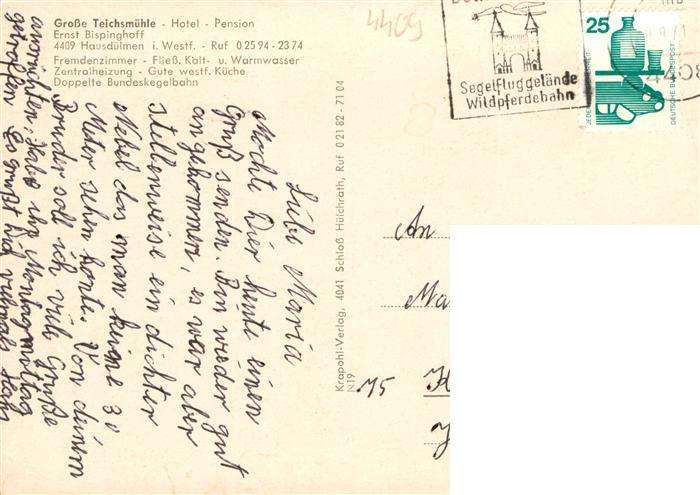 Große Teichsmühle - Hotel - Pension
Ernst Bispinghoff
4409 Hausdülmen i. Westf. - Ruf 0 25 94 - 23 74
Fremdenzimmer - Fließ. Kalt- u. Warmwasser
Zentralheizung - Gute westf. Küche
Doppelte Bundeskegelbahn
4409
Segelfluggelände
Wildpferdebahn
4408
25
DEUTSCHE BUNDESPOST
Liebe Maria
Möchte Dir heute einen
Gruß senden. Bin wieder gut
angekommen, es war aber
stellenweise ein dichter
Nebel das man keine 30
Meter sehen konte. Von deinem
Bruder soll ich viele Grüße
ausrichten, habe ihn Montagmittag
getroffen Es grüßt dich vielmals Hans
Krapohl-Verlag, 4041 Schloß Hülchrath, Ruf 0 21 82 - 71 04
N19
An
Ma
75 H